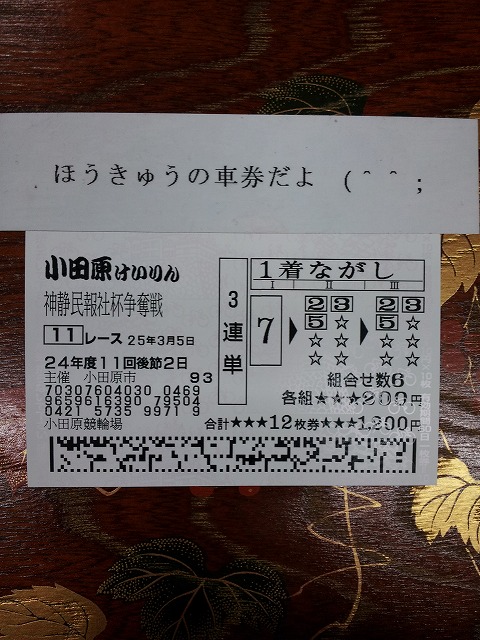 ほうきゅうの車券だよ (＾＾;
小田原けいりん
神静民報社杯争奪戦
11レース 25年3月5日
24年度11回後節2日
主催 小田原市 93
70307604030 0469
9659616390 79504
0421 5735 9971 9
小田原競輪場
3連単
1着ながし
Ⅰ Ⅱ Ⅲ
7 ▶ 2 3 ▶ 2 3
5 ☆ 5 ☆
☆ ☆ ☆ ☆
☆ ☆ ☆ ☆
組合せ数6
各組★★★200円
合計★★★12枚券★★★1,200円